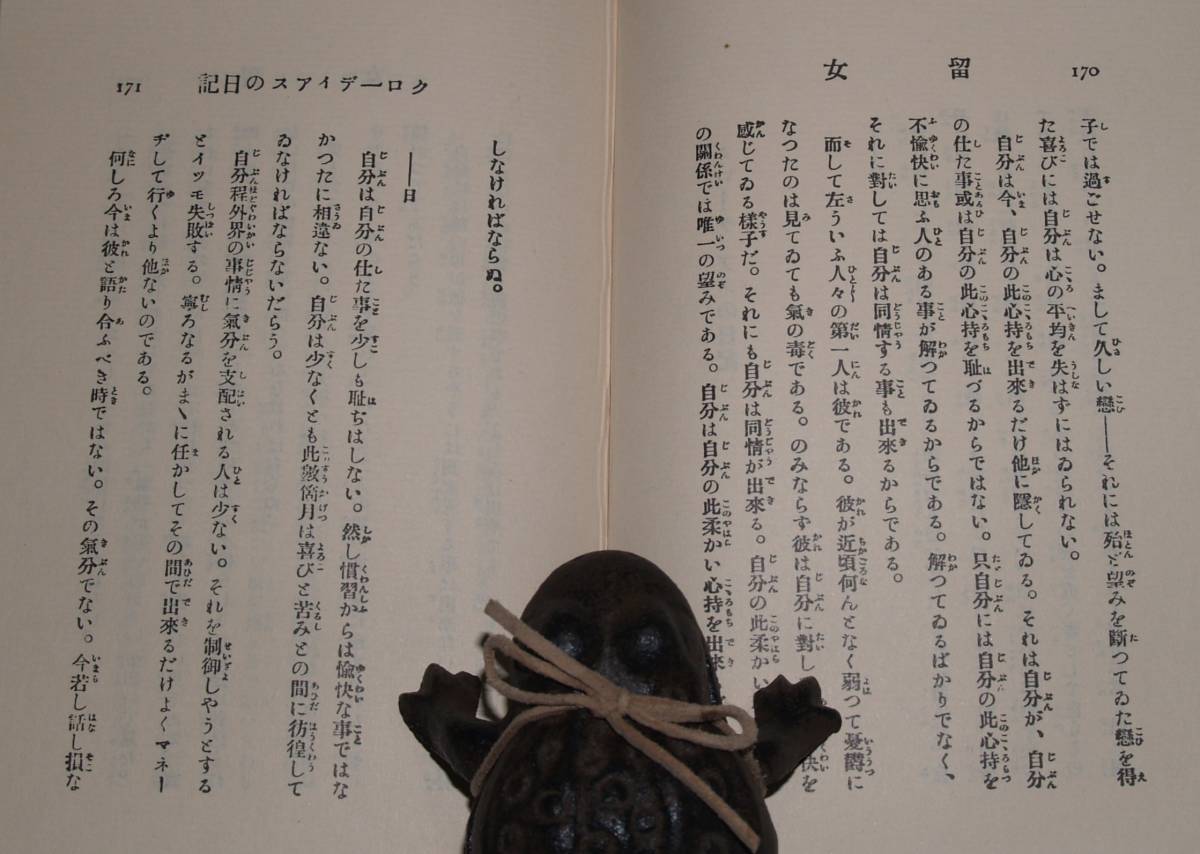 170
留女
子では過ごせない。まして久しい戀――それには殆ど望みを斷つてゐた戀を得
た喜びには自分は心の平均を失はずにはゐられない。
自分は今、自分の此心持を出來るだけ他に隱してゐる。それは自分が、自分
の仕た事或は自分の此心持を耻づるからではない。只自分には自分の此心持を
不愉快に思ふ人のある事が解つてゐるからである。解つてゐるばかりでなく、
それに對しては自分は同情する事も出來るからである。
而して左ういふ人々の第一人は彼である。彼が近頃何んとなく弱つて憂欝に
なつたのは見てゐても氣の毒である。のみならず彼は自分に對し 快を
感じてゐる樣子だ。それにも自分は同情が出來る。自分の此柔かい
の關係では唯一の望みである。自分は自分の此柔かい心持を出來
クローディアスの日記
171
しなければならぬ。
――日
自分は自分の仕た事を少しも耻ぢはしない。然し慣習からは愉快な事ではな
かつたに相違ない。自分は少なくとも此數箇月は喜びと苦みとの間に彷徨して
ゐなければならないだらう。
自分程外界の事情に氣分を支配される人は少ない。それを制御しやうとする
とイツモ失敗する。寧ろなるがまゝに任かしてその間で出來るだけよくマネー
ヂして行くより他ないのである。
何しろ今は彼と語り合ふべき時ではない。その氣分でない。今若し話し損な